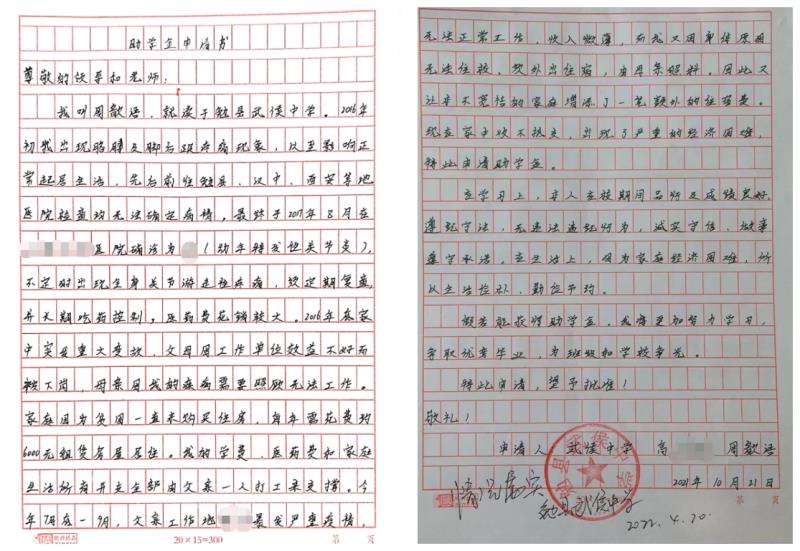 助学金申请书
尊敬的领导和老师：
我叫周歆语，就读于勉县武侯中学。2016年
初我出现胳膊及脚后跟疼痛现象，以至影响正
常起居生活，先后前往勉县、汉中、西安等地
医院检查均无法确定病情。最终于2017年8月在
医院确诊为（幼年特发性关节炎），
不定时出现全身关节游走性疼痛，须定期复查，
并长期吃药控制，医药费花销较大。2016年底家
中突发重大变故，父母因工作单位效益不好而
被下岗，母亲因我的疾病需要照顾无法工作。
家庭因为贫困一直未购买住房，每年需花费约
6000元租赁房屋居住。我的学费、医药费和家庭
生活所有开支全部由父亲一人打工来支撑。今
年7月底—9月，父亲工作地最发严重疫情，
20×15=300
第 页
无法正常工作，收入微薄，而我又因身体原因
无法住校，须外出住宿，由母亲照料。因此又
让并不宽裕的家庭增添了一笔额外的住宿费。
现在家中欠不抵支，出现了严重的经济困难，
特此申请助学金。
在学习上，本人在校期间品行及成绩良好，
遵纪守法，无违法违纪行为，诚实守信、做事
遵守承诺。在生活上，因为家庭经济困难，所
以生活俭朴、勤俭节约。
假若能获得助学金，我将更加努力学习，
争取优秀毕业，为班级和学校争光。
特此申请，望予批准！
敬礼！
申请人：武侯中学 高 周歆语
2021年10月21日
情况属实
勉县武侯中学
2022.4.20.
第 页
勉县武侯中学